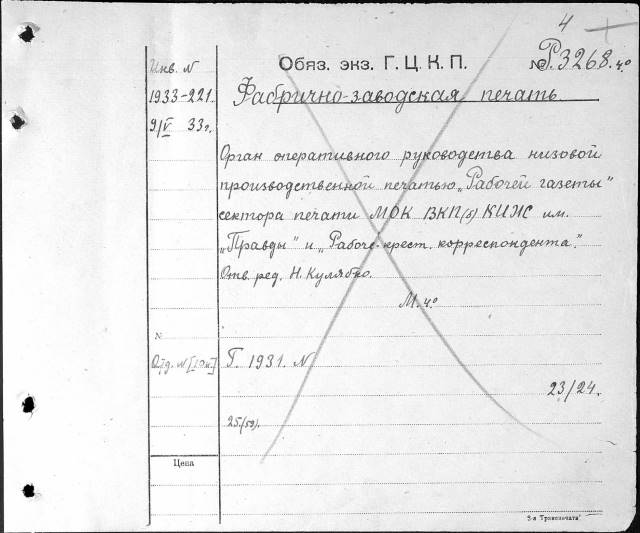 4
Инв. N
1933-221
9/V 33г.
Обяз. экз. Г.Ц.К.П.
№ Р.3268. 4.º
Фабрично-заводская печать.
Орган оперативного руководства низовой
производственной печатью „Рабочей газеты"
сектора печати МОК ВКП(б) КИЖ им.
„Правды" и „Рабоче-крест. корреспондента".
Отв. ред. Н. Кулябко.
М. 4.º
N
Г. 1931. N
23/24.
25/(59).
Цена